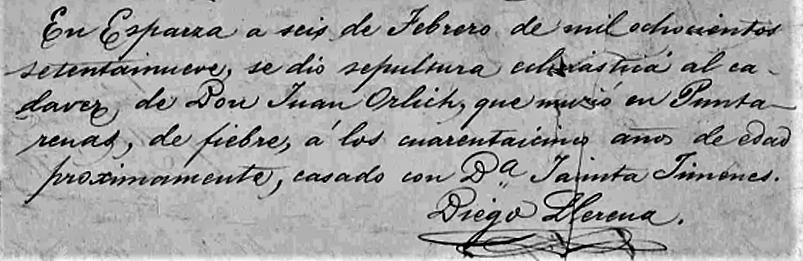 En Esparza a seis de Febrero de mil ochocientos
setentainueve, se dió sepultura eclesiástica al ca-
daver, de Don Juan Orlich, que murió en Punta-
renas, de fiebre, á los cuarentaicinco anos de edad
proximamente, casado con Da Jacinta Jimenes.
Diego Llerena.